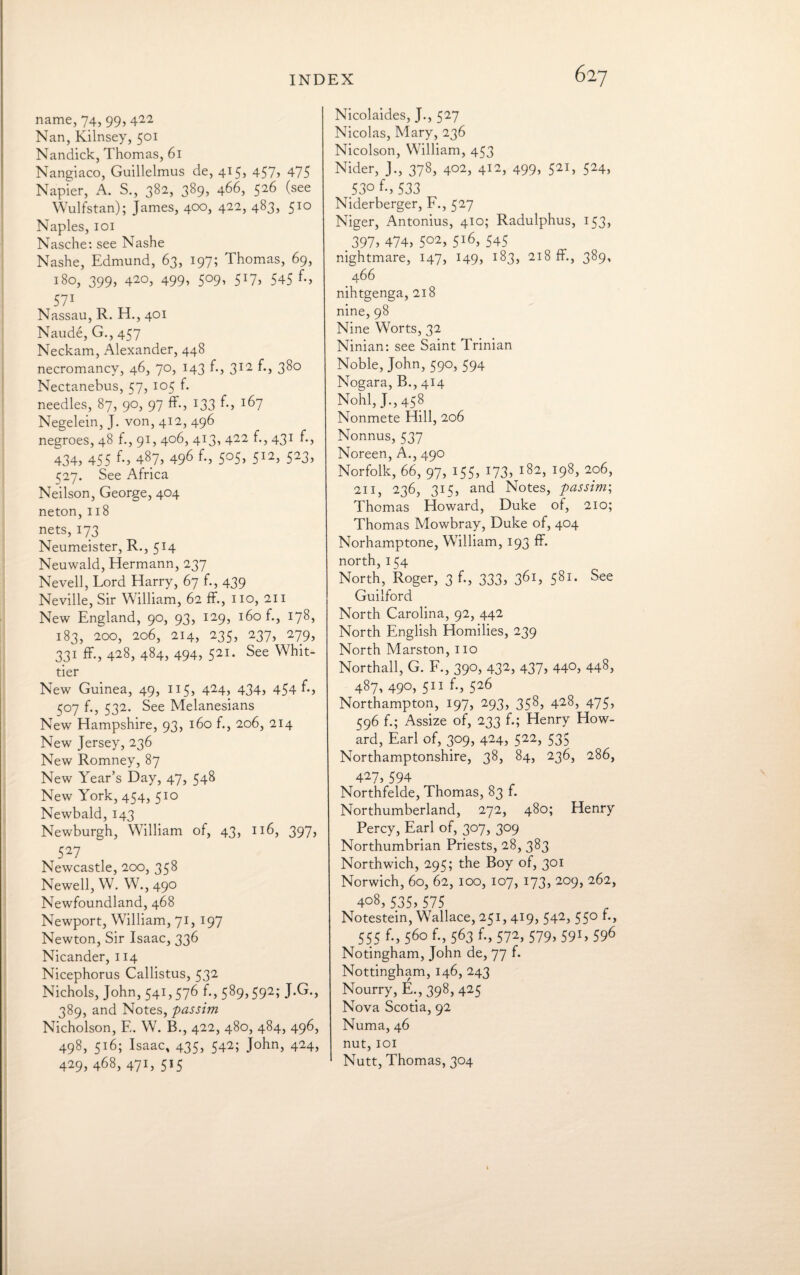 INDEX 627
name, 74, 99, 422
Nan, Kilnsey, 501
Nandick, Thomas, 61
Nangiaco, Guillelmus de, 415, 457, 475
Napier, A. S., 382, 389, 466, 526 (see
Wulfstan); James, 400, 422, 483, 510
Naples, 101
Nasche: see Nashe
Nashe, Edmund, 63, 197; Thomas, 69,
180, 399, 420, 499, 509, 517, 545 f.,
571
Nassau, R. H., 401
Naudé, G., 457
Neckam, Alexander, 448
necromancy, 46, 70, 143 f., 312 f., 380
Nectanebus, 57, 105 f.
needles, 87, 90, 97 ff., 133 f., 167
Negelein, J. von, 412, 496
negroes, 48 f., 91, 406, 413, 422 f., 431 f.,
434, 455 f., 487, 496 f., 505, 512, 523,
527. See Africa
Neilson, George, 404
neton, 118
nets, 173
Neumeister, R., 514
Neuwald, Hermann, 237
Nevell, Lord Harry, 67 f., 439
Neville, Sir William, 62 ff., 110, 211
New England, 90, 93, 129, 160 f., 178,
183, 200, 206, 214, 235, 237, 279,
331 ff., 428, 484, 494, 521. See Whit-
tier
New Guinea, 49, 115, 424, 434, 454 f.,
507 f., 532. See Melanesians
New Hampshire, 93, 160 f., 206, 214
New Jersey, 236
New Romney, 87
New Year's Day, 47, 548
New York, 454, 510
Newbald, 143
Newburgh, William of, 43, 116, 397,
527
Newcastle, 200, 358
Newell, W. W., 490
Newfoundland, 468
Newport, William, 71, 197
Newton, Sir Isaac, 336
Nicander, 114
Nicephorus Callistus, 532
Nichols, John, 541, 576 f., 589, 592; J.G.,
389, and Notes, passim
Nicholson, E. W. B., 422, 480, 484, 496,
498, 516; Isaac, 435, 542; John, 424,
429, 468, 471, 515
Nicolaides, J., 527
Nicolas, Mary, 236
Nicolson, William, 453
Nider, J., 378, 402, 412, 499, 521, 524,
530 f., 533
Niderberger, F., 527
Niger, Antonius, 410; Radulphus, 153,
397, 474, 502, 516, 545
nightmare, 147, 149, 183, 218 ff., 389,
466
nihtgenga, 218
nine, 98
Nine Worts, 32
Ninian: see Saint Trinian
Noble, John, 590, 594
Nogara, B., 414
Nohl, J., 458
Nonmete Hill, 206
Nonnus, 537
Noreen, A., 490
Norfolk, 66, 97, 155, 173, 182, 198, 206,
211, 236, 315, and Notes, passim;
Thomas Howard, Duke of, 210;
Thomas Mowbray, Duke of, 404
Norhamptone, William, 193 ff.
north, 154
North, Roger, 3 f., 333, 361, 581. See
Guilford
North Carolina, 92, 442
North English Homilies, 239
North Marston, 110
Northall, G. F., 390, 432, 437, 440, 448,
487, 490, 511 f., 526
Northampton, 197, 293, 358, 428, 475,
596 f.; Assize of, 233 f.; Henry How-
ard, Earl of, 309, 424, 522, 535
Northamptonshire, 38, 84, 236, 286,
427, 594
Northfelde, Thomas, 83 f.
Northumberland, 272, 480; Henry
Percy, Earl of, 307, 309
Northumbrian Priests, 28, 383
Northwich, 295; the Boy of, 301
Norwich, 60, 62, 100, 107, 173, 209, 262,
408, 535, 575
Notestein, Wallace, 251, 419, 542, 550 f.,
555 f., 560 f., 563 f., 572, 579, 591, 596
Notingham, John de, 77 f.
Nottingham, 146, 243
Nourry, É., 398, 425
Nova Scotia, 92
Numa, 46
nut, 101
Nutt, Thomas, 304